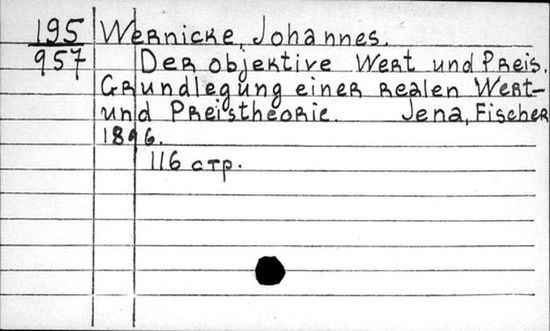 195 Wernicke, Johannes.
957 Der objektive Wert und Preis.
Grundlegung einer realen Wert-
und Preistheorie. Jena, Fischer
1896.
116 стр.